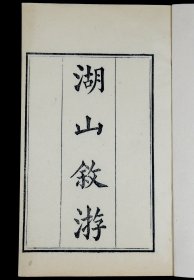 湖山敘游